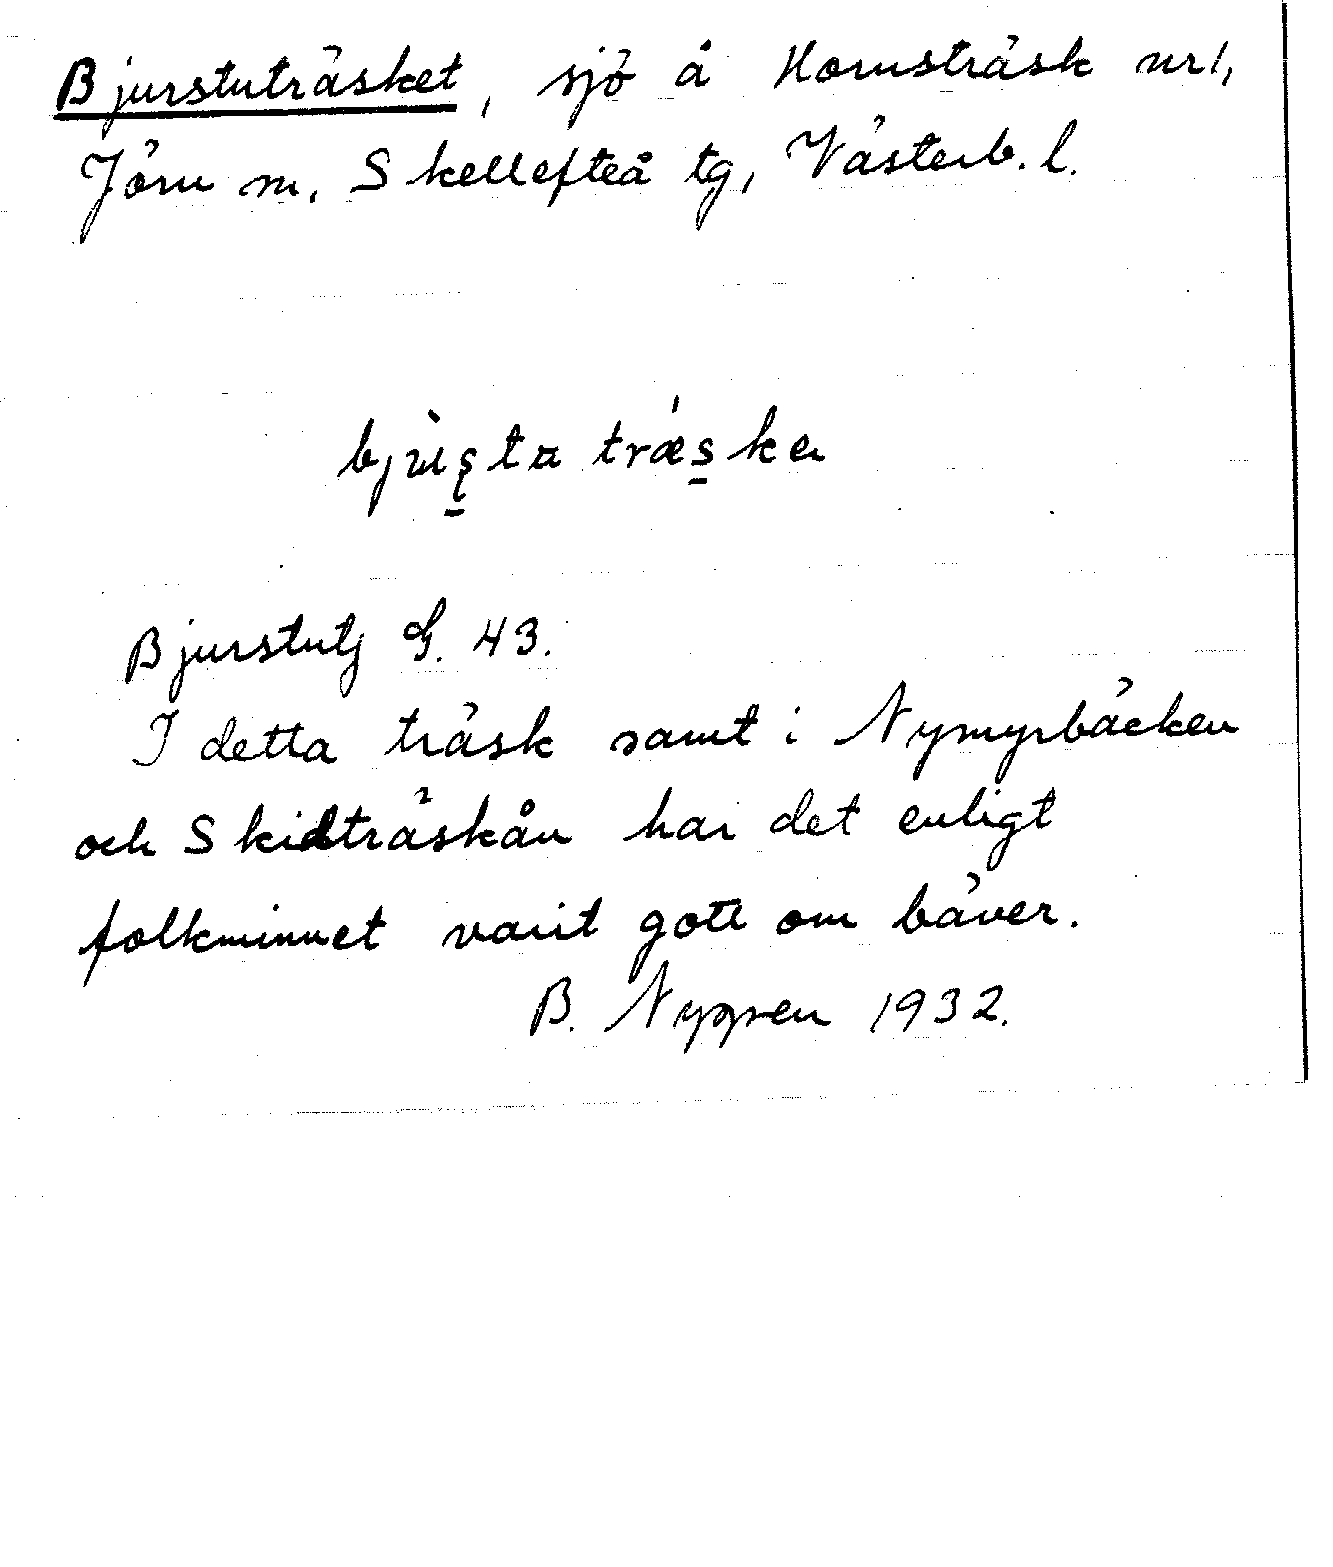 Bjurstuträsket, sjö å Hornsträsk nr 1,
Jörn sn. Skellefteå tg, Västerb. l.
bjʉ̀ʂta træ̀ska
Bjurstutj G. 43.
I detta träsk samt i Nymyrbäcken
och Skidträskån har det enligt
folkminnet varit gott om bäver.
B. Nygren 1932.